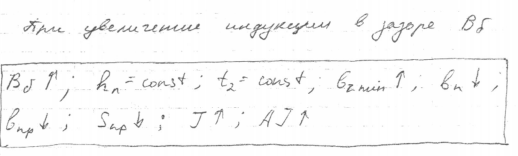 При увеличение индукции в зазоре Bδ
Bδ ↑; hп = const; t₂ = const; bzmin ↑; bп ↓;
bпр ↓; Sпр ↓; J ↑; AJ ↑